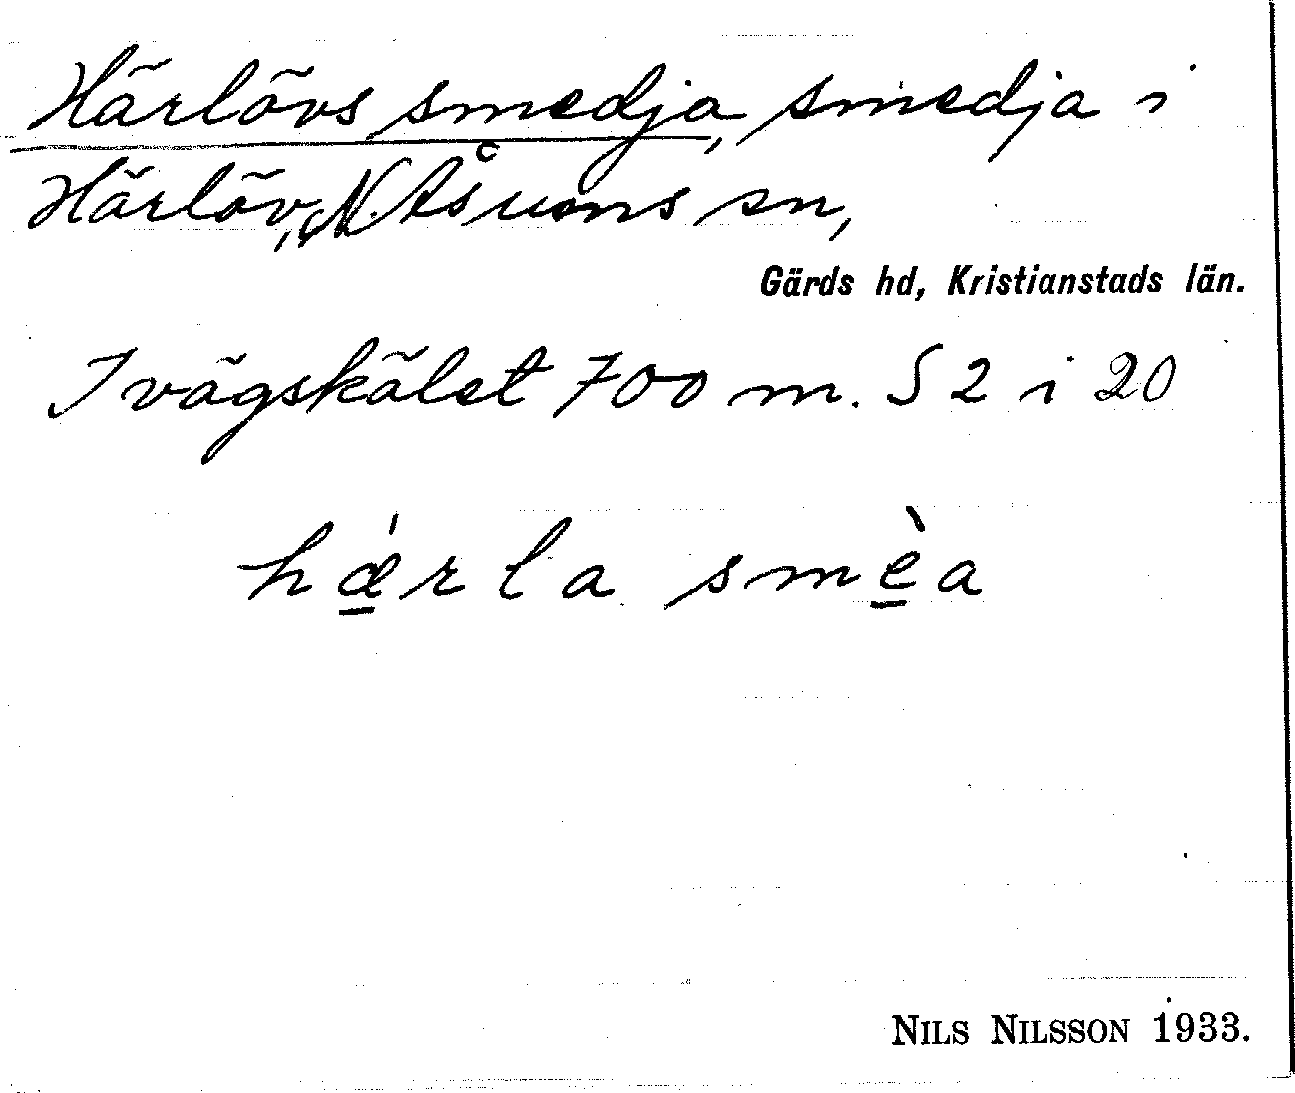 Härlövs smedja, smedja i
Härlöv, N. Åsums sn,
Gärds hd, Kristianstads län.
I vägskälet 700 m. S 2 i 20
hǽ̱rla smè̱a
NILS NILSSON 1933.